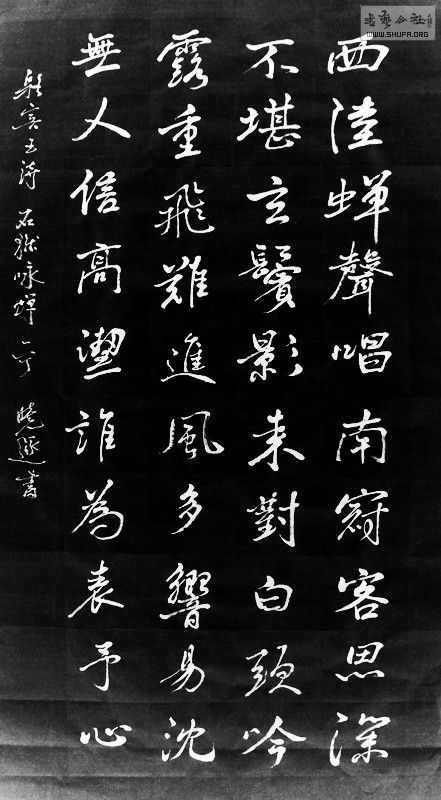 西陸蟬聲唱南冠客思深
不堪玄鬢影来對白頭吟
露重飛難進風多響易沈
無人信高潔誰為表予心
駱賓王詩 在獄咏蟬一首 曉邃書
書藝公社
WWW.SHUFA.ORG